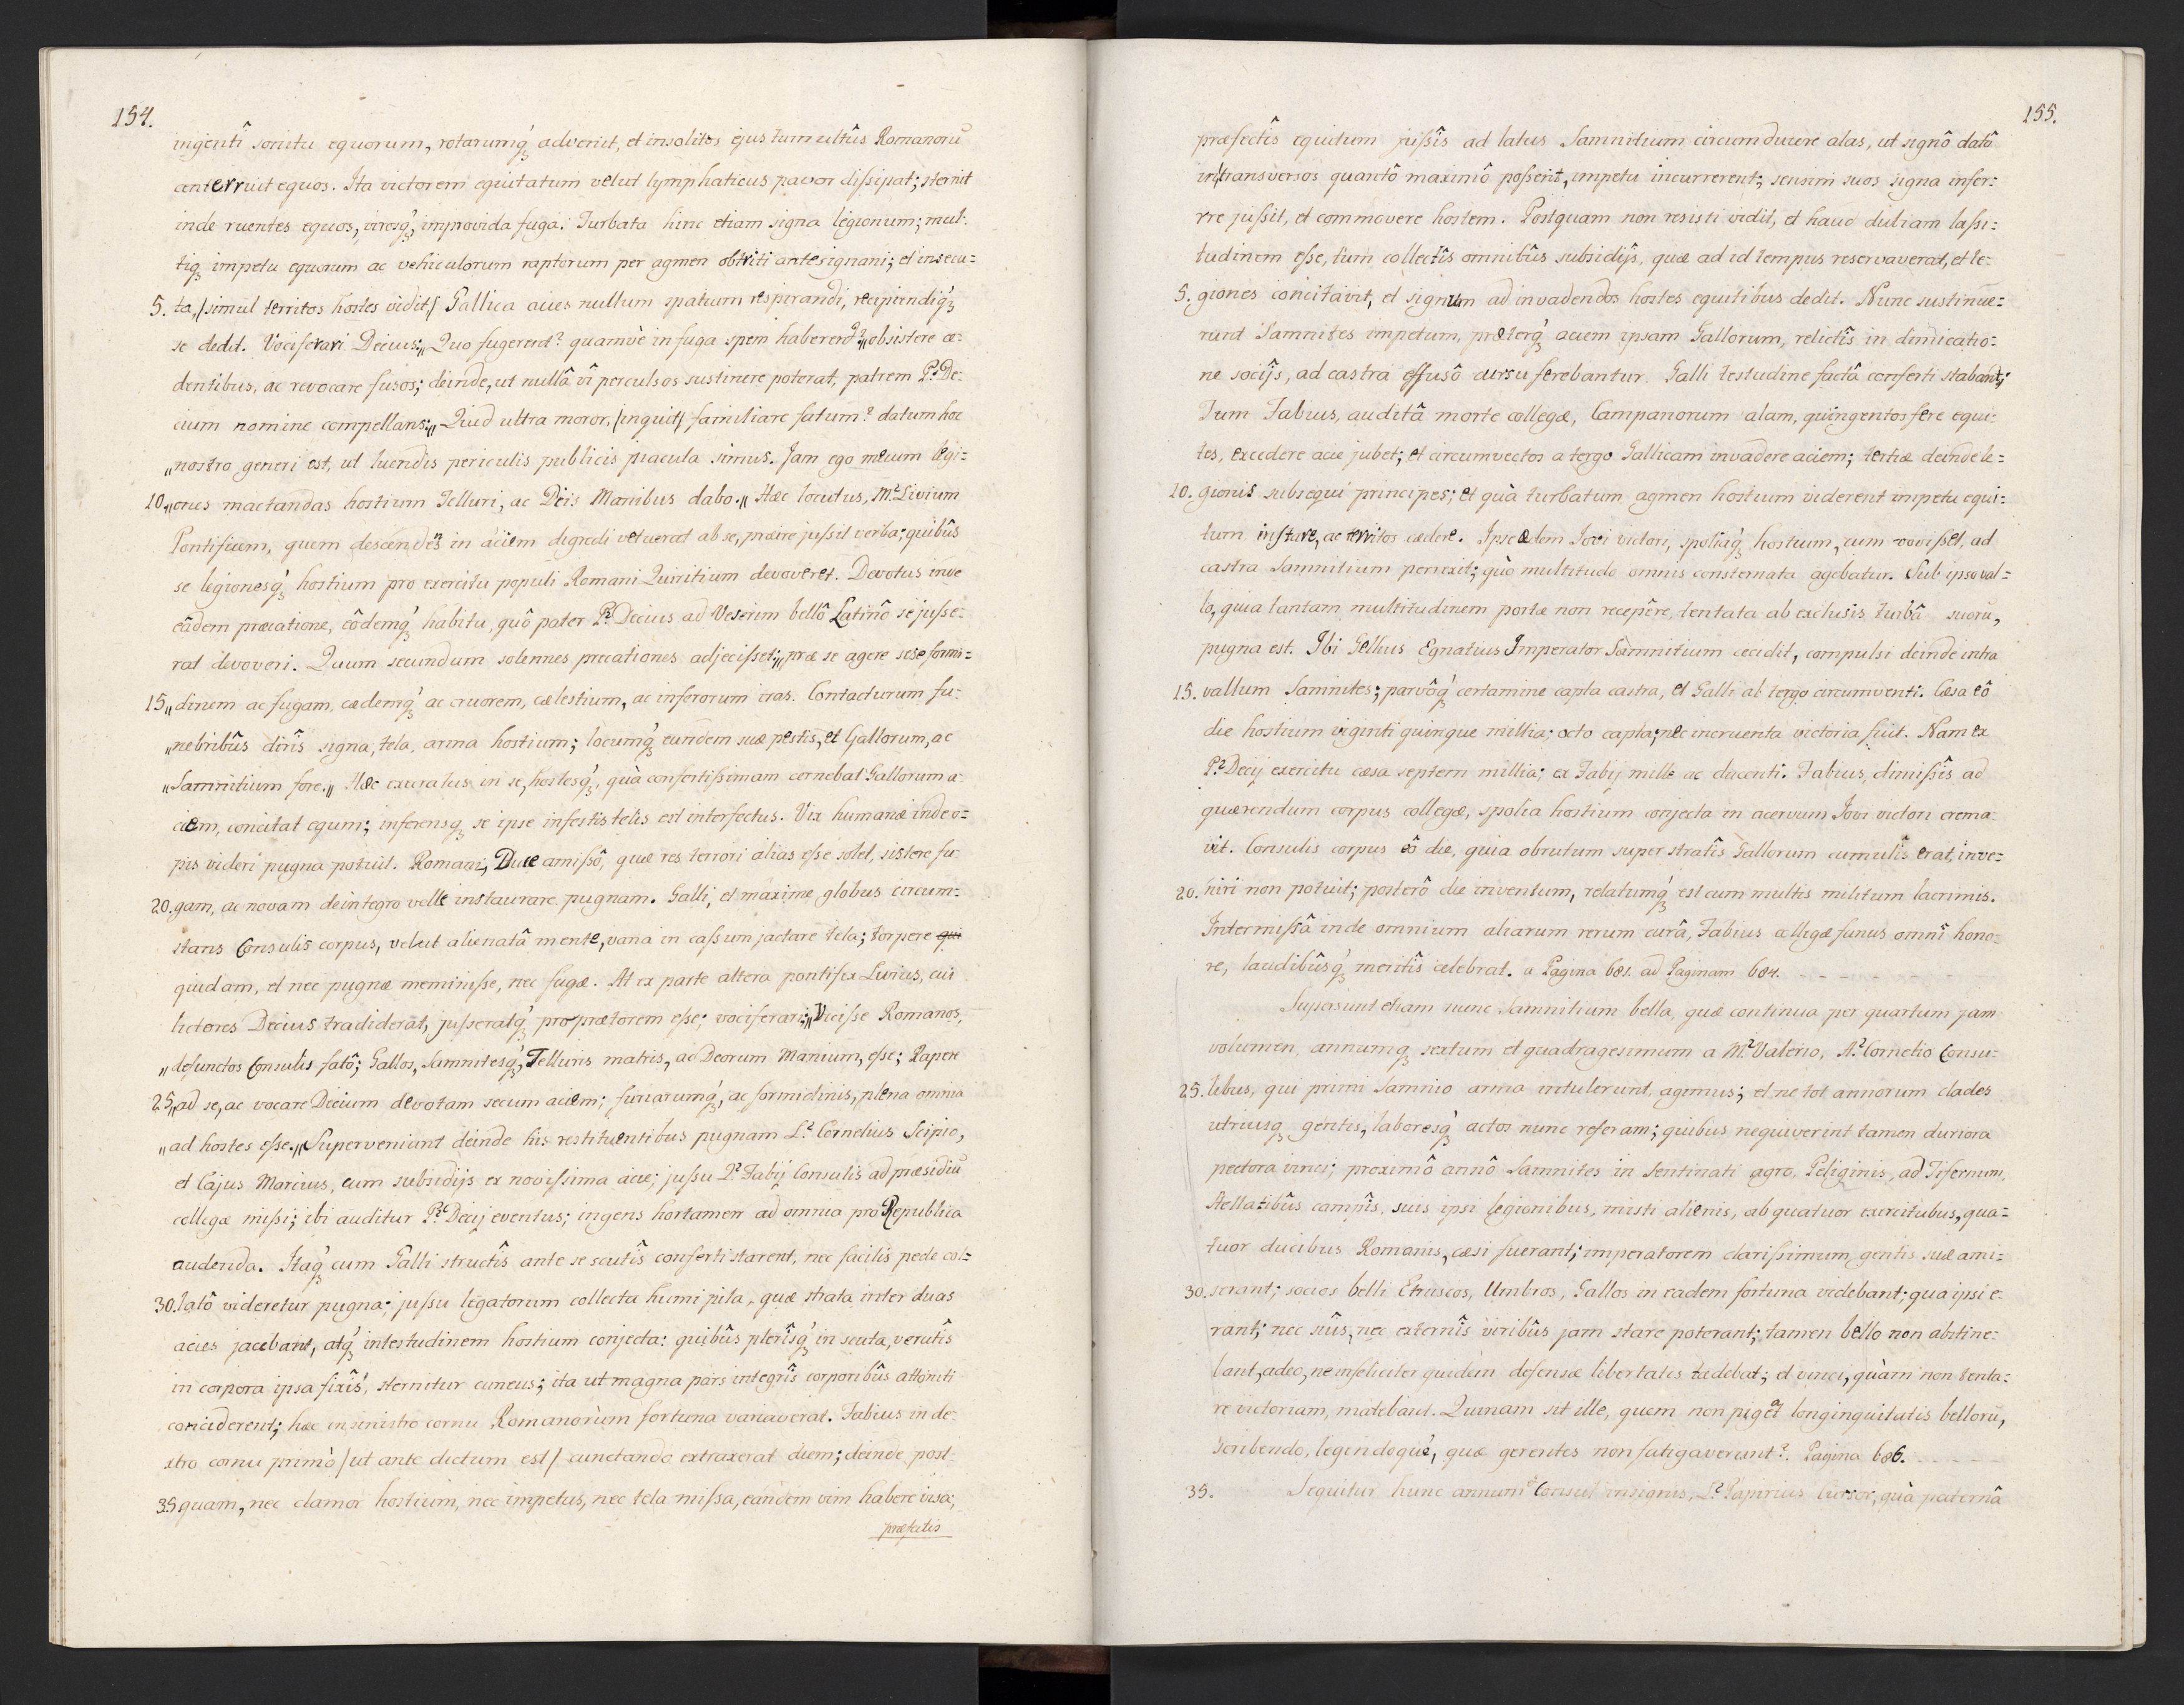 154.
ingentî sonitu equorum, rotarumq́ꝫ advenit, et insolitos ejus tumultûs Romanorū
conterruit equos. Ita victorem equitatum velut lymphaticus pavor dissipat; sternit
inde ruentes equos, virosq́ꝫ, improvida fuga. Turbata hinc etiam signa legionum; mul-
tiqꝫ impetu equorum ac vehiculorum raptorum per agmen obtriti antesignani; et insecu=
5. ta, /simul territos hostes vidit/ Gallica acies nullum spatium respirandi, recipiendiq́ꝫ
se dedit. Vociferari Decius: „Quo fugerent? quamvè in fuga spem haberent?„ obsistere ce-
dentibus, ac revocare fusos; deinde, ut nullâ vî perculsos sustinere poterat, patrem P. De-
cium nomine compellans: „Quid ultra moror, /inquit/ familiare fatum? datum hoc
„nostro generi est, ut luendis periculis publicis piacula simus. Jam ego mecum legi=
10. „ones mactandas hostium Telluri, ac Dijs Manibus dabo.„ Hæc locutus, M. Livium
Pontificem, quem descendens in aciem digredi vetuerat ab se, præire jussit verba; quibûs
se legionesq́ꝫ hostium pro exercitu populi Romani Quiritium devoveret. Devotus inde
eâdem precatione, eôdemq́ꝫ habitu, quô pater P. Decius ad Veserim bellô Latinô se jusse-
rat devoveri. Quum secundum solennes precationes adjecisset; „præ se agere sese formi=
15. „dinem ac fugam, cædemq́ꝫ ac cruorem, cælestium, ac inferorum iras. Contacturum fu-
„nebribûs dirîs signa, tela, arma hostium; locumq́ꝫ eundem suæ pestis, et Gallorum, ac
„Samnitium fore.„ Hæc execratus in se, hostesq́ꝫ, quà confertissimam cernebat Gallorum a-
ciem, concitat equm; inferensqꝫ se ipse infestis telis est interfectus. Vix humanæ inde o=
pis videri pugna potuit. Romani, Duce amissô, quæ res terrori alias esse solet, sistere fu-
20. gam, ac novam de integro velle instaurare pugnam. Galli, et maxime, globus circum=
stans Consulis corpus, velut alienatâ mente, vana in cassum jactare tela; torpere qui
quidam, et nec pugnæ meminisse, nec fugæ. At ex parte altera pontifex Livius, cui
lictores Decius tradiderat, jusseratq́ꝫ proprætorem esse; vociferari: „Vicisse Romanos,
„defunctos Consulis fatô; Gallos, Samnitesq́ꝫ, Telluris matris, ac Deorum Manium, esse; Rapere
25. „ad se, ac vocare Decium devotam secum aciem; furiarumq́ꝫ, ac formidinis, plena omnia
„ad hostes esse.„ Superveniunt deinde his restituentibus pugnam L. Cornelius Scipio,
et Cajus Marcius, cum subsidijs ex novissima acie; jussu Q. Fabij Consulis ad præsidiū
collegæ missi; ibi auditur P. Decij eventus; ingens hortamen ad omnia pro Republica
audenda. Itaq́ꝫ cum Galli structîs ante se scutîs conferti starent, nec facilis pede col=
30. latô videretur pugna; jussu legatorum collecta humi pila, quæ strata inter duas
acies jacebant, atq́ꝫ in testudinem hostium conjecta: quibûs plerîsq́ꝫ in scuta, verutîs
in corpora ipsa fixîs, sternitur cuneus; ita ut magna pars integrîs corporibûs attoniti
conciderent; hæc in sinistro cornu Romanorum fortuna variaverat. Fabius in de-
xtro cornu primò /ut ante dictum est/ cunctando extraxerat diem; deinde post-
35. quam, nec clamor hostium, nec impetus, nec tela missa, eandem vim habere visa;
præfectis
155.
præfectîs equitum jussîs ad latus Samnitium circumducere alas, ut signô datô
in transversos quantô maximô possent, impetu incurrerent; sensim suos signa infer=
rre jussit, et commovere hostem. Postquam non resisti vidit, et haud dubiam lassi=
tudinem esse, tum collectîs omnibûs subsidijs, quæ ad id tempus reservaverat, et le-
5. giones concitavit, et signum ad invadendos hostes equitibus dedit. Nunc sustinue=
runt Samnites impetum, præterq́ꝫ aciem ipsam Gallorum, relictîs in dimicatio=
ne socijs, ad castra effusô cursu ferebantur. Galli testudine factâ conferti stabant;
Tum Fabius, auditâ morte collegæ, Campanorum alam, quingentos fere equi-
tes, excedere acie jubet; et circumvectos a tergo Gallicam invadere aciem; tertiæ deinde le=
10. gionis subsequi principes; et quà turbatum agmen hostium viderent impetu equi=
tum instare, ac territos cædere. Ipse ædem Jovi victori, spoliaq́ꝫ hostium, cum vovisset, ad
castra Samnitium perrexit; quò multitudo omnis consternata agebatur. Sub ipso val=
lo, quia tantam multitudinem portæ non recepêre, tentata ab exclusis turbâ suorū,
pugna est. Ibi Gellius Egnatius Imperator Samnitium cecidit, compulsi deinde intra
15. vallum Samnites; parvôq́ꝫ certamine capta castra, et Galli ab tergo circumventi. Cæsa eô
die hostium viginti quinque millia; octo capta; nec incruenta victoria fuit. Nam ex
P. Decij exercitu cæsa septem millia; ex Fabij mille ac ducenti. Fabius, dimissîs ad
quærendum corpus collegæ, spolia hostium conjecta in acervum Jovi victori crema-
vit. Consulis corpus eô die, quia obrutum super stratîs Gallorum cumulîs erat, inve=
20. niri non potuit; posterô die inventum, relatumq́ꝫ est cum multis militum lacrimis.
Intermissâ inde omnium aliarum rerum curâ, Fabius collegæ funus omnî hono=
re, laudibûsq́ꝫ meritîs celebrat. a Pagina 681. ad Paginam 684.
Supersunt etiam nunc Samnitium bella, quæ continua per quartum jam
volumen, annumqꝫ sextum et quadragesimum a M. Valerio, A. Cornelio Consu-
25. libus, qui primi Samnio arma intulerunt, agimus; et ne tot annorum clades
utriusqꝫ gentis, laboresq́ꝫ actos nunc referam; quibus nequiverint tamen duriora
pectora vinci; proximô annô Samnites in Sentinati agro, Pelignis, ad Tifernum,
Stellatibûs campîs, suis ipsi legionibus, misti alienis, ab quatuor exercitubus, qua=
tuor ducibus Romanis, cæsi fuerant; imperatorem clarissimum gentis suæ ami=
30. serant; socios belli Etruscos, Umbros, Gallos in eadem fortuna videbant; qua ipsi e-
rant; nec suîs, nec externîs viribûs jam stare poterant; tamen bello non abstine-
bant, adeo, ne infeliciter quidem defensæ libertatis tædebat; et vinci, quàm non tenta=
re victoriam, malebant. Quinam sit ille, quem non piget longinquitatis bellorū,
scribendo, legendoque, quæ gerentes non fatigaverunt? Pagina 686.
35. Sequitur hunc annum et Consul insignis, L. Papirius Cursor, quà paternâ